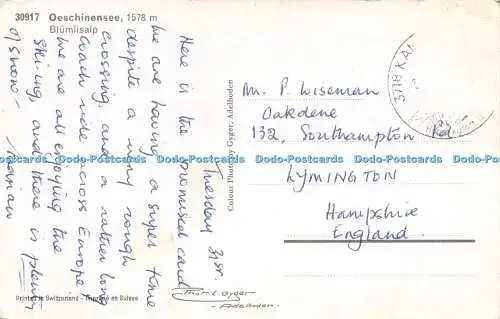 30917 Oeschinensee, 1578 m
Blümlisalp
Tuesday 31st.
Here is the promised card
We are having a super time
despite a very rough
crossing, and a rather long
coach ride across Europe.
We are all enjoying the
skiing, and there is plenty
of snow -
Marian
Mr. P. Wiseman
Oakdene
132, Southampton Rd
LYMINGTON
Hampshire
England.
Colour Photo by Gyger, Adelboden
Phot. E. Gyger
Adelboden
Printed in Switzerland - Imprimé en Suisse
Dodo-Postcards Dodo-Postcards Dodo-Postcards Dodo-Postcards Dodo-Postcards Dodo-Postcards